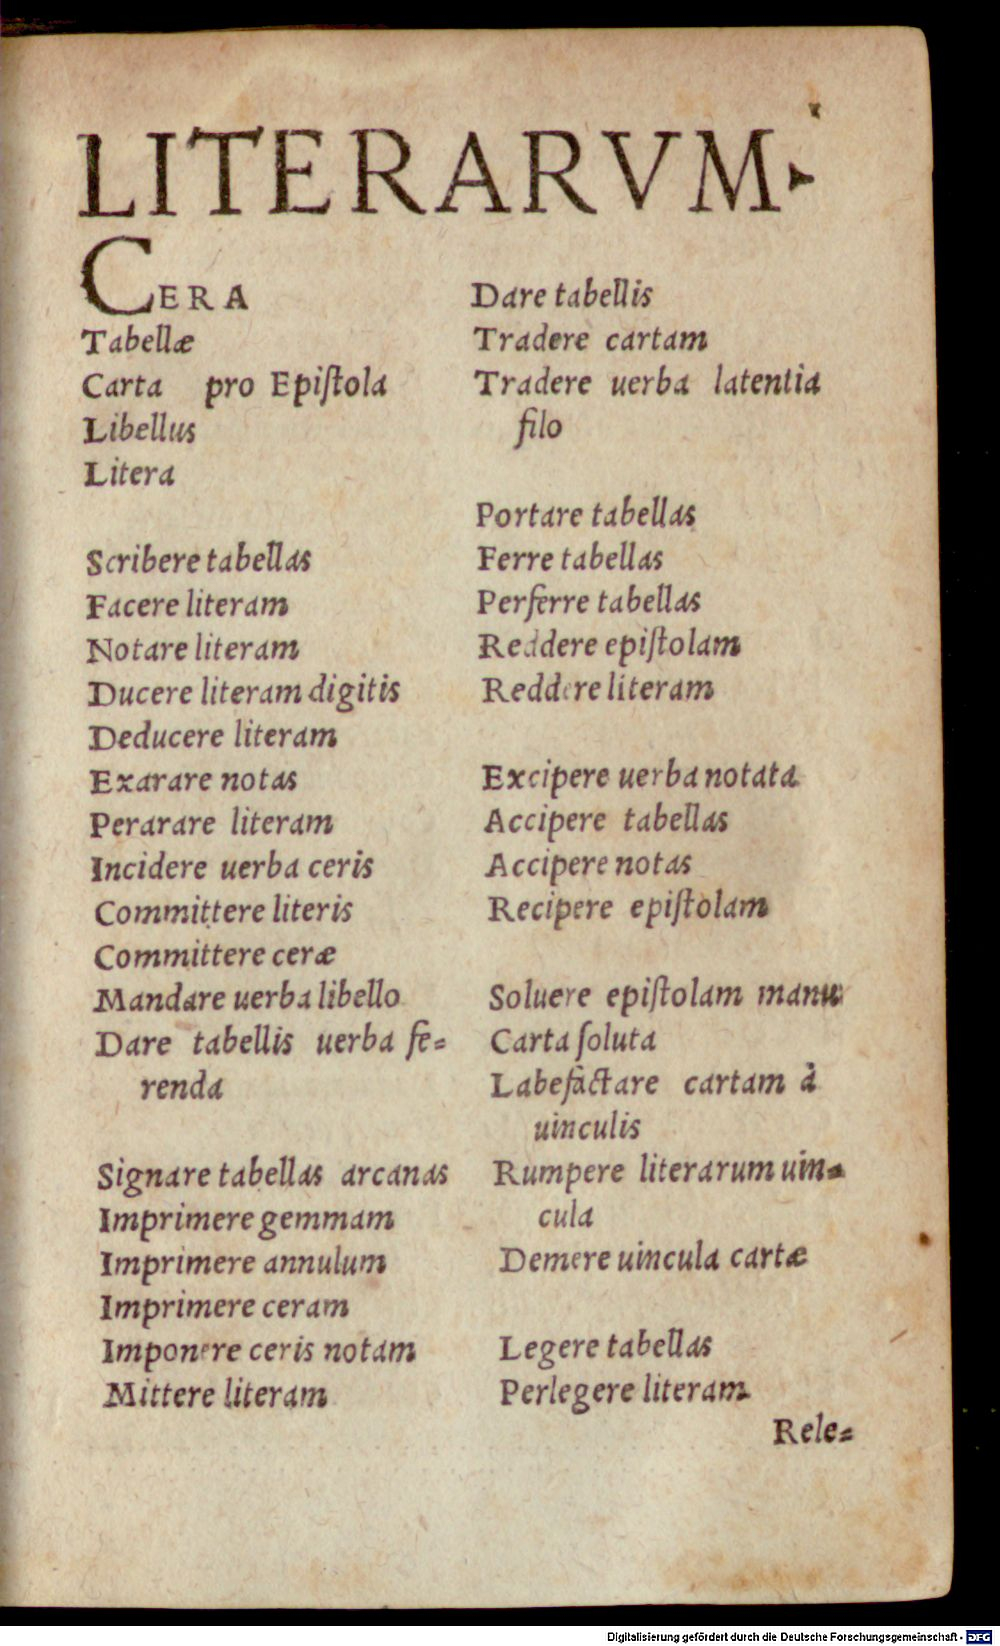 LITERARVM.
CERA
Tabellæ
Carta pro Epiſtola
Libellus
Litera
Scribere tabellas
Facere literam
Notare literam
Ducere literam digitis
Deducere literam
Exarare notas
Perarare literam
Incidere uerba ceris
Committere literis
Committere ceræ
Mandare uerba libello
Dare tabellis uerba fe=
renda
Signare tabellas arcanas
Imprimere gemmam
Imprimere annulum
Imprimere ceram
Imponere ceris notam
Mittere literam
Dare tabellis
Tradere cartam
Tradere uerba latentia
filo
Portare tabellas
Ferre tabellas
Perferre tabellas
Reddere epiſtolam
Reddere literam
Excipere uerba notata
Accipere tabellas
Accipere notas
Recipere epiſtolam
Soluere epiſtolam manu
Carta ſoluta
Labefactare cartam à
uinculis
Rumpere literarum uin=
cula
Demere uincula cartæ
Legere tabellas
Perlegere literam
Rele=
Digitalisierung gefördert durch die Deutsche Forschungsgemeinschaft - DFG